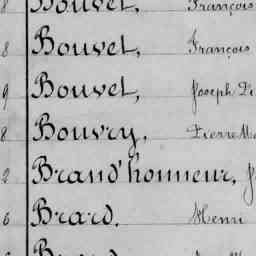 8 Bouvet, François
8 Bouvet, François
9 Bouvet, Joseph
8 Bouvry, Pierre
2 Brand'honneur,
6 Brard, Henri